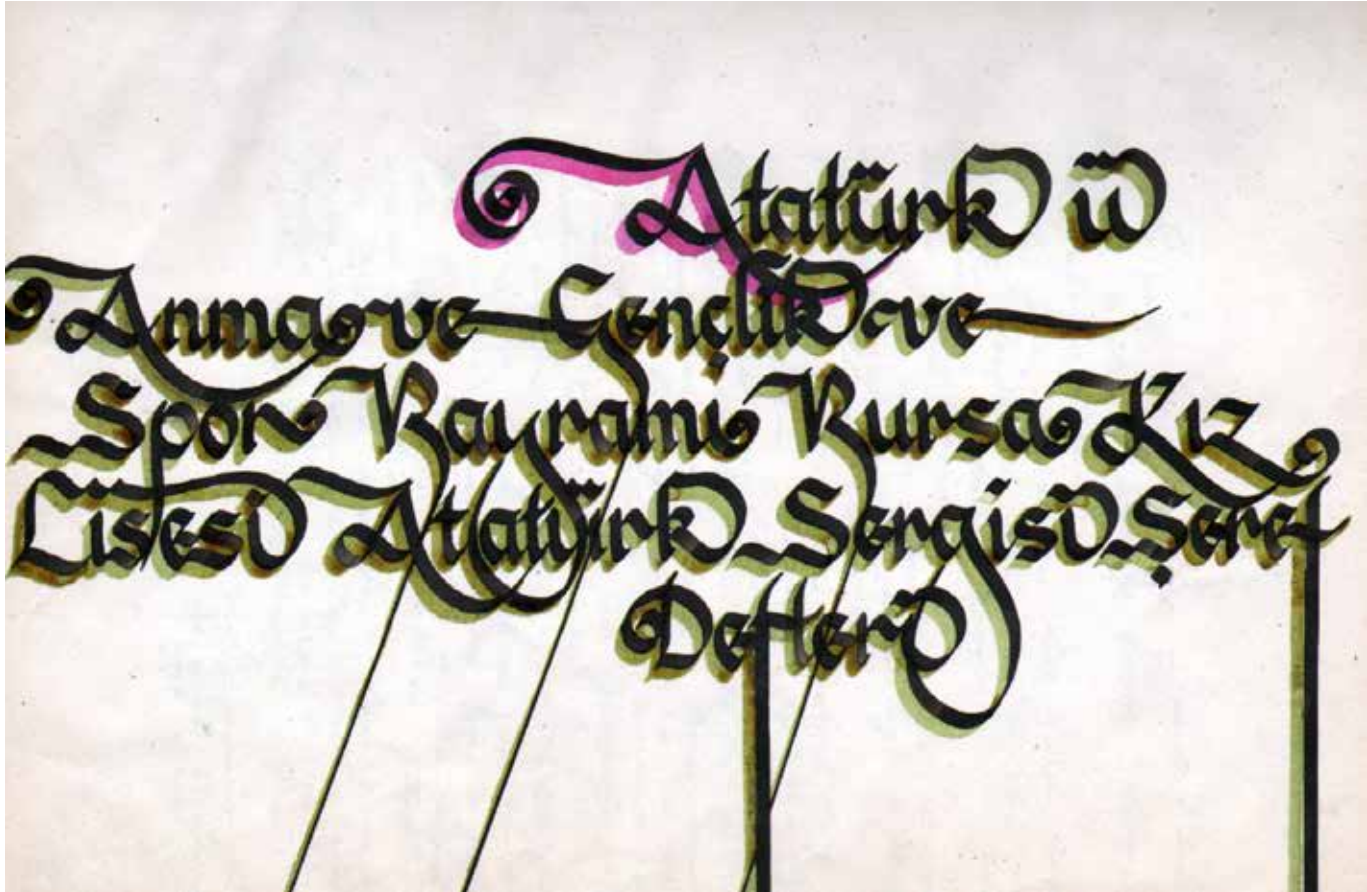 Atatürk'ü
Anma ve Gençlik ve
Spor Bayramı Bursa Kız
Lisesi Atatürk Sergisi Şeref
Defteri